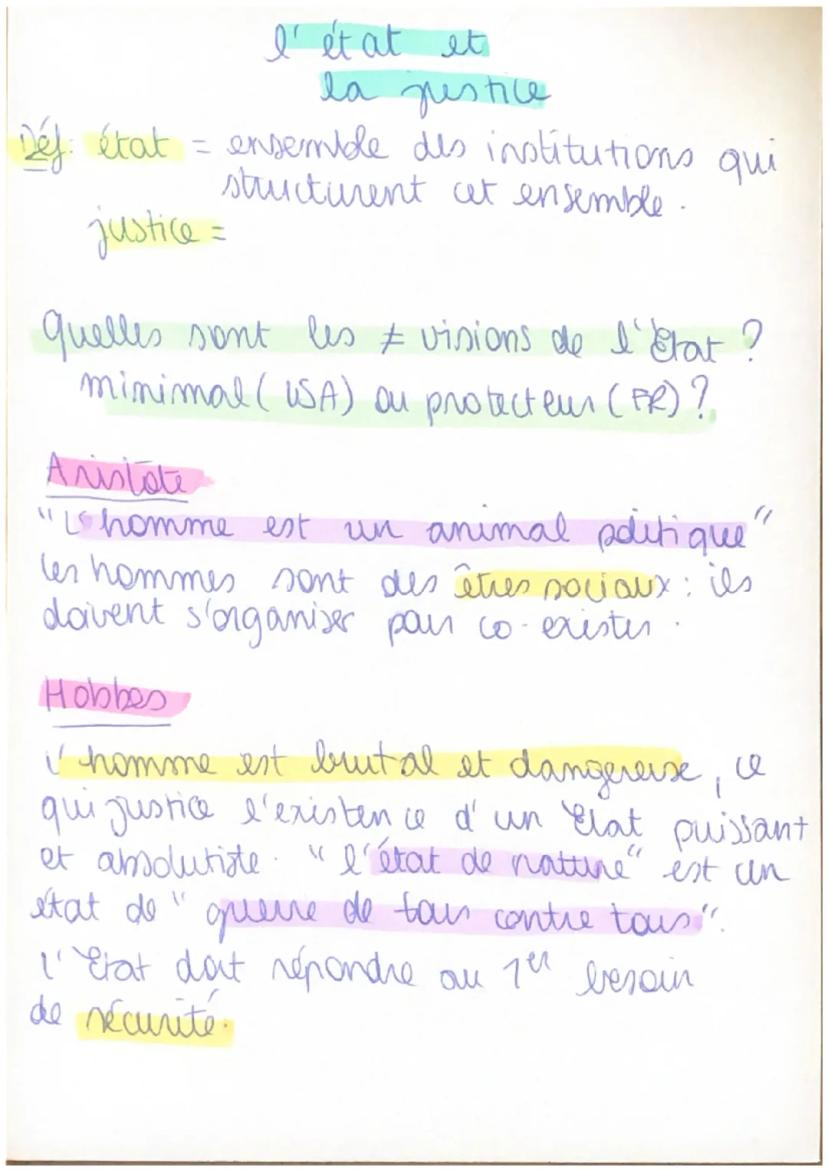 l'état et
la justice
Déf: état = ensemble des institutions qui
structurent cet ensemble.
justice =
Quelles sont les ≠ visions de l'État ?
minimal (USA) ou protecteur (FR) ?
Aristote
"L'homme est un animal politique"
les hommes sont des êtres sociaux : ils
doivent s'organiser pour co-exister.
Hobbes
l'homme est brutal et dangereuse, ce
qui justice l'existence d'un État puissant
et absolutiste. "l'état de nature" est un
état de "guerre de tous contre tous".
l'État doit répondre au 1er besoin
de sécurité.